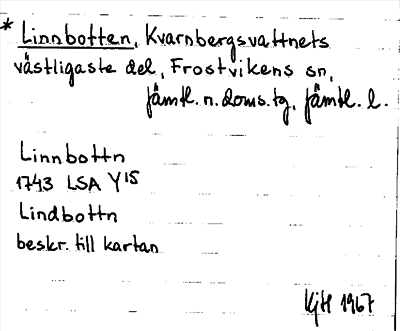 * Linnbotten, Kvarnbergsvattnets
västligaste del, Frostvikens sn,
Jämtl. n. doms.tg, Jämtl. l.
Linnbottn
1743 LSA Y15
Lindbottn
beskr. till kartan
KjH 1967